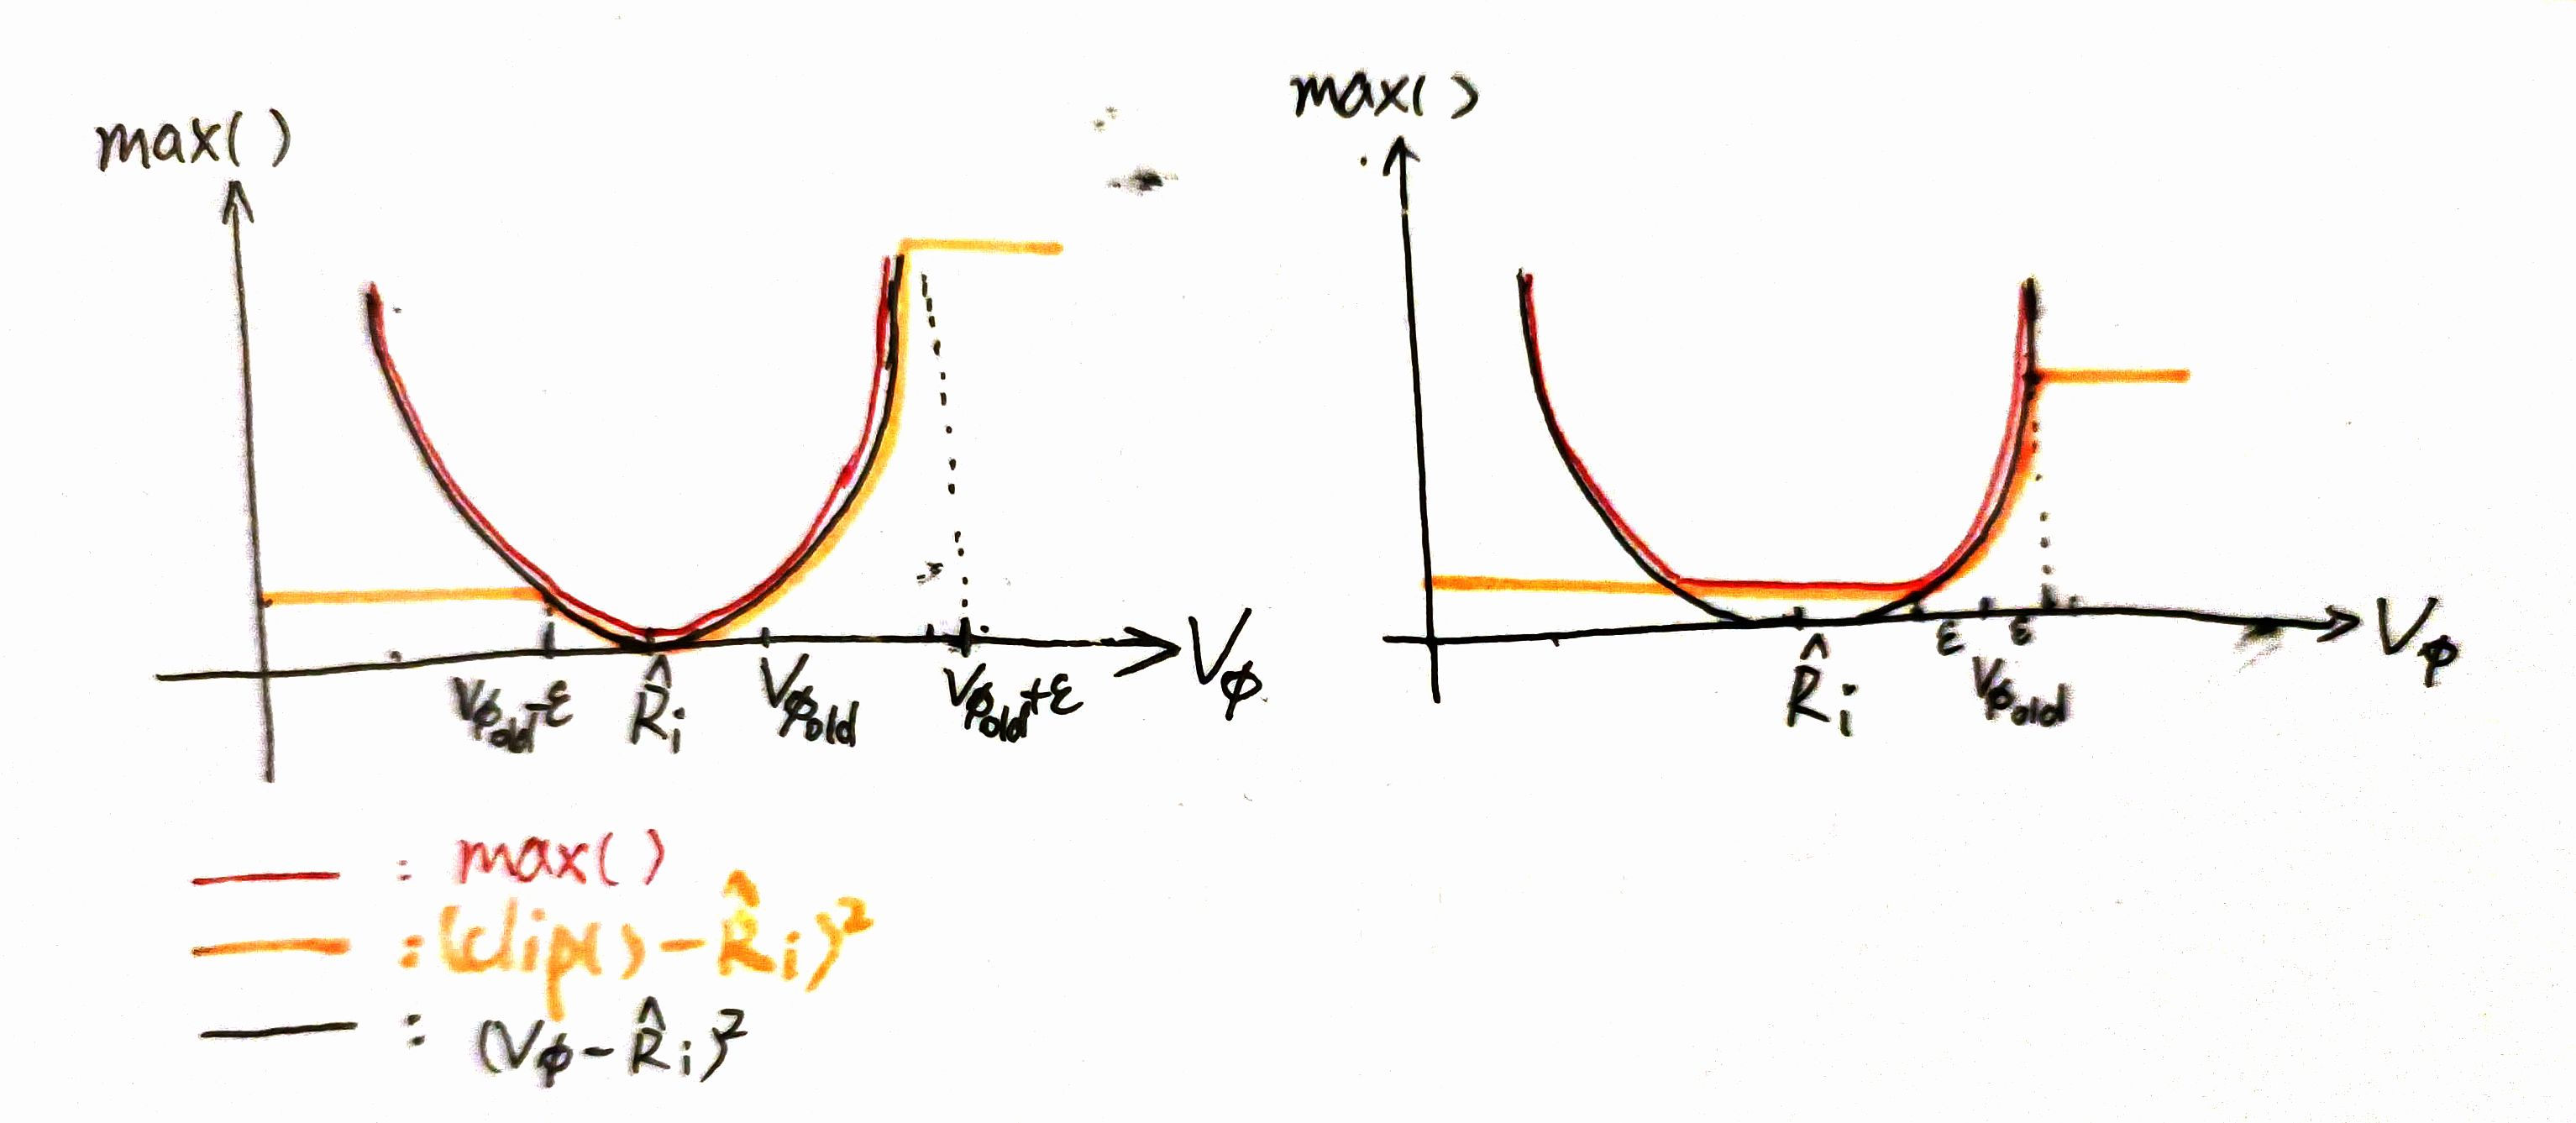 max()
V_{φ_{old}}-ε
R̂_i
V_{φ_{old}}
V_{φ_{old}}+ε
V_φ
max()
ε
ε
R̂_i
V_{φ_{old}}
V_φ
: max()
: (clip()-R̂_i)²
: (V_φ-R̂_i)²